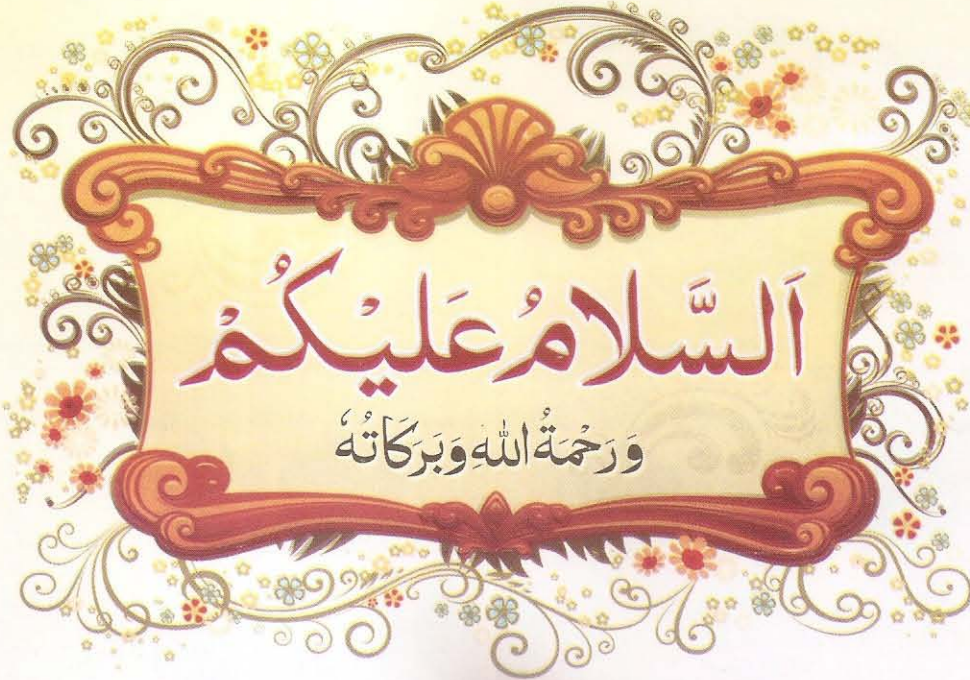 اَلسَّلَامُ عَلَيْكُمْ
وَرَحْمَةُ اللهِ وَبَرَكَاتُهٗ